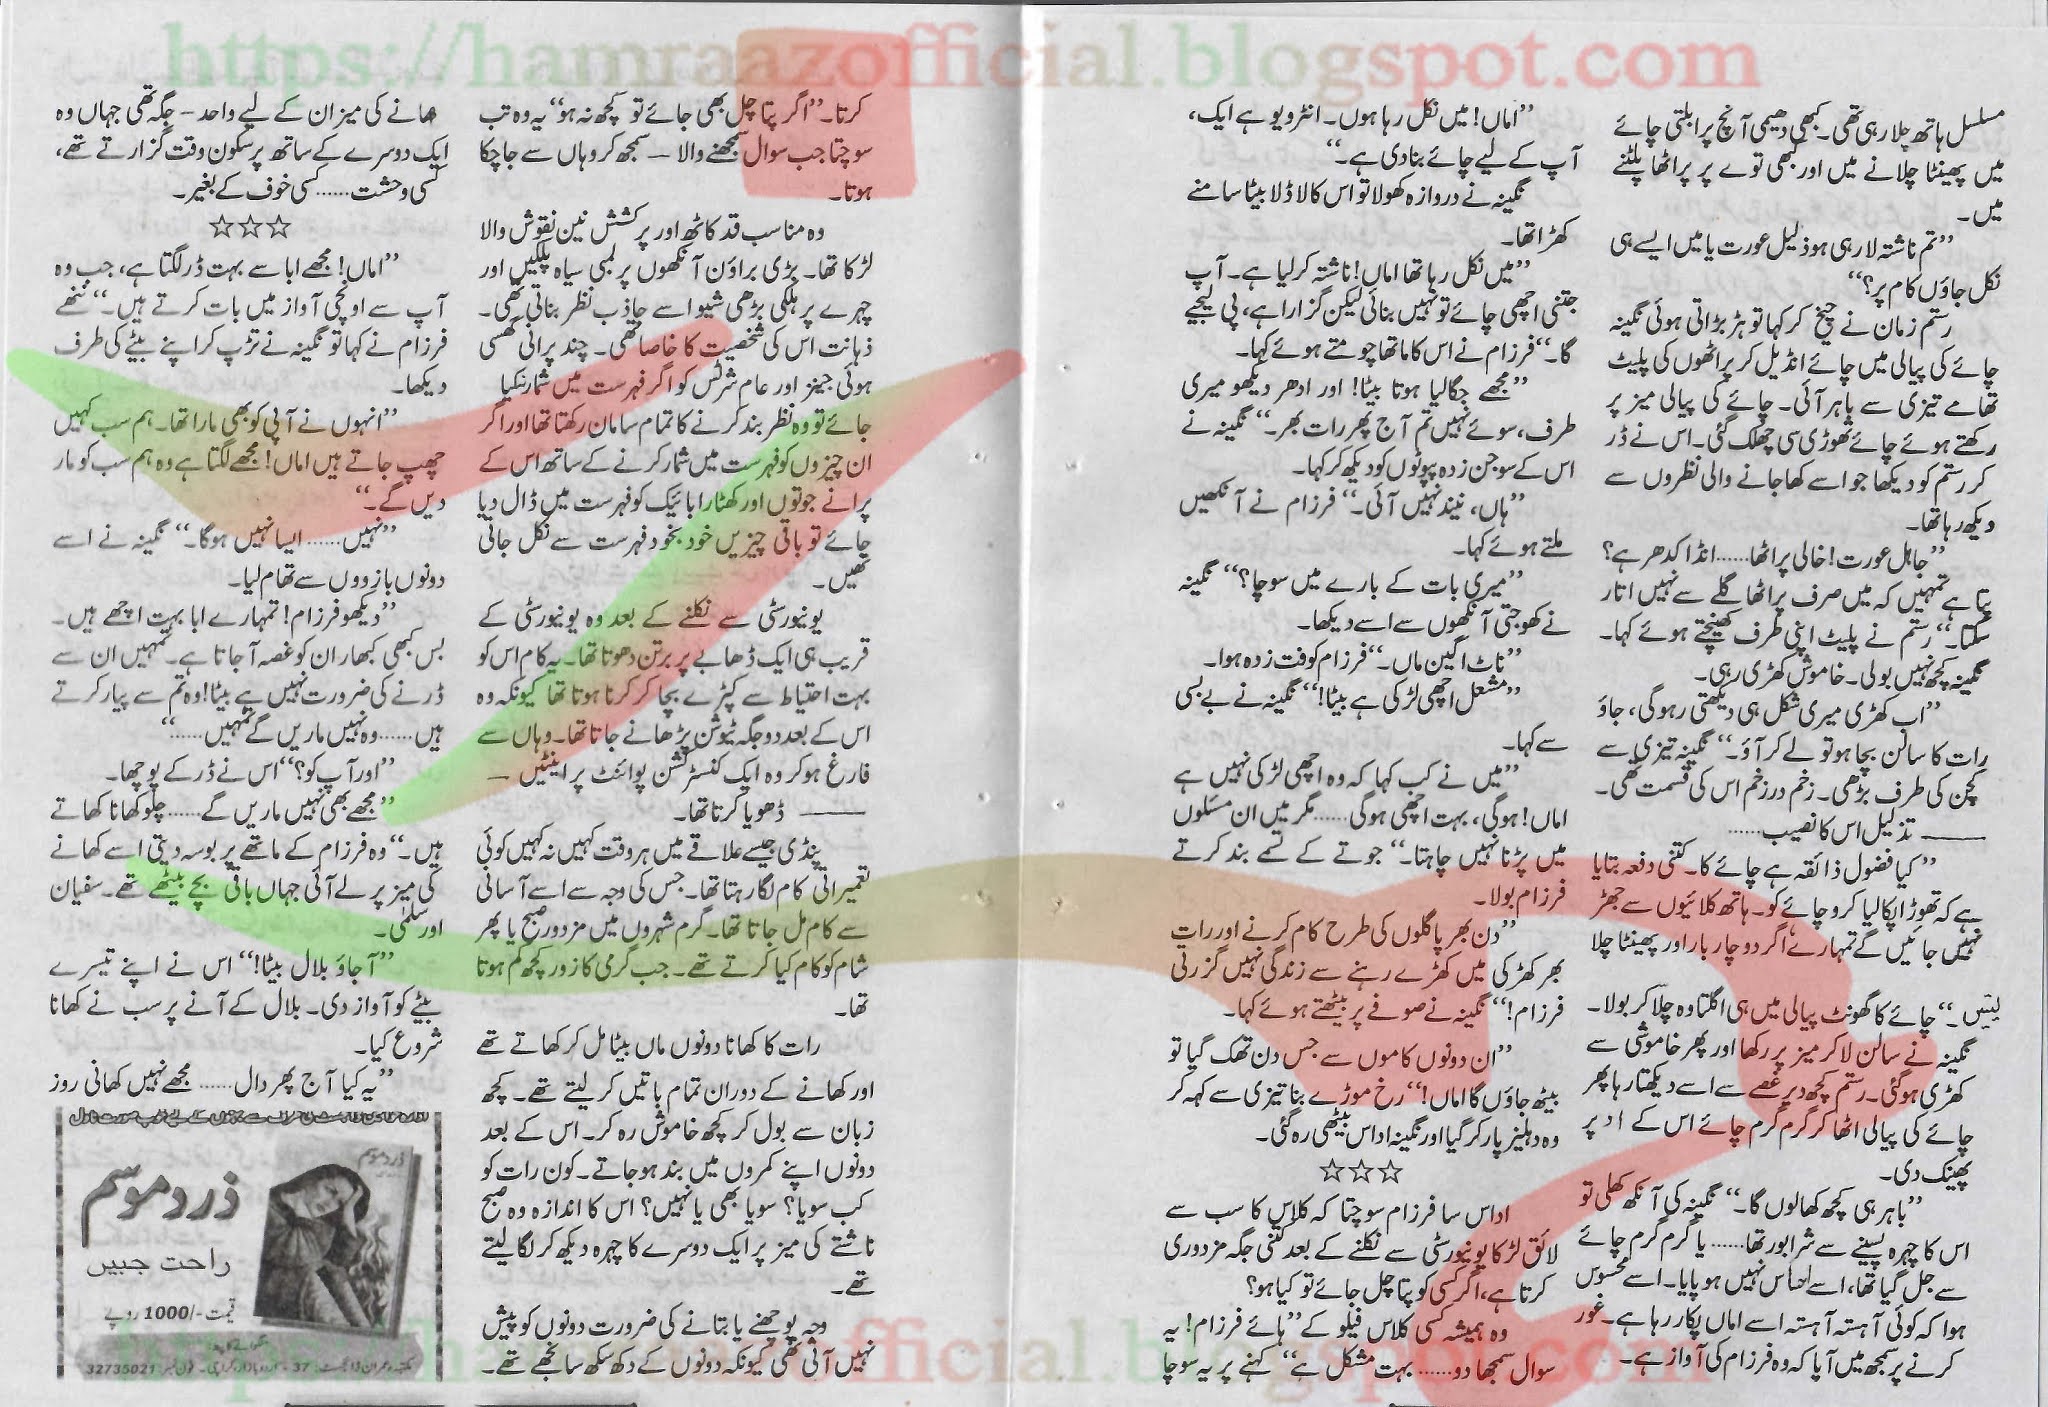 https://hamraazofficial.blogspot.com
مسلسل ہاتھ چلا رہی تھی۔ کبھی دھیمی آنچ پر ابلتی چائے
میں پھینٹا چلانے میں اور کبھی توے پر پراٹھا پلٹنے
میں۔
”تم ناشتہ لا رہی ہو ذلیل عورت یا میں ایسے ہی
نکل جاؤں کام پر؟“
رستم زمان نے چیخ کر کہا تو ہڑبڑاتی ہوئی نگینہ
چائے کی پیالی میں چائے انڈیل کر پراٹھوں کی پلیٹ
تھامے تیزی سے باہر آئی۔ چائے کی پیالی میز پر
رکھتے ہوئے چائے تھوڑی سی چھلک گئی۔ اس نے ڈر
کر رستم کو دیکھا جو اسے کھا جانے والی نظروں سے
دیکھ رہا تھا۔
”جاہل عورت! خالی پراٹھا...... انڈا کدھر ہے؟
پتا ہے تمہیں کہ میں صرف پراٹھا گلے سے نہیں اتار
سکتا۔“ رستم نے پلیٹ اپنی طرف کھینچتے ہوئے کہا۔
نگینہ کچھ نہیں بولی۔ خاموش کھڑی رہی۔
”اب کھڑی میری شکل ہی دیکھتی رہو گی، جاؤ
رات کا سالن بچا ہو تو لے کر آؤ۔“ نگینہ تیزی سے
کچن کی طرف بڑھی۔ زخم در زخم اس کی قسمت تھی۔
—— تذلیل اس کا نصیب......
”کیا فضول ذائقہ ہے چائے کا۔ کتنی دفعہ بتایا
ہے کہ تھوڑا پکا لیا کرو چائے کو۔ ہاتھ کلائیوں سے جھڑ
نہیں جائیں گے تمہارے اگر دو چار بار اور پھینٹا چلا
لیتیں۔“ چائے کا گھونٹ پیالی میں ہی اگلتا وہ چلا کر بولا۔
نگینہ نے سالن لا کر میز پر رکھا اور پھر خاموشی سے
کھڑی ہو گئی۔ رستم کچھ دیر غصے سے اسے دیکھتا رہا پھر
چائے کی پیالی اٹھا کر گرم گرم چائے اس کے اوپر
پھینک دی۔
”باہر ہی کچھ کھا لوں گا۔“ نگینہ کی آنکھ کھلی تو
اس کا چہرہ پسینے سے شرابور تھا...... یا گرم گرم چائے
سے جل گیا تھا، اسے احساس نہیں ہو پایا۔ اسے محسوس
ہوا کہ کوئی آہستہ آہستہ اسے اماں پکار رہا ہے۔ غور
کرنے پر سمجھ میں آیا کہ وہ فرزام کی آواز ہے۔
”اماں! میں نکل رہا ہوں۔ انٹرویو ہے ایک،
آپ کے لیے چائے بنا دی ہے۔“
نگینہ نے دروازہ کھولا تو اس کا لاڈلا بیٹا سامنے
کھڑا تھا۔
”میں نکل رہا تھا اماں! ناشتہ کر لیا ہے۔ آپ
جتنی اچھی چائے تو نہیں بنائی لیکن گزارا ہے، پی لیجیے
گا۔“ فرزام نے اس کا ماتھا چومتے ہوئے کہا۔
”مجھے جگا لیا ہوتا بیٹا! اور ادھر دیکھو میری
طرف، سوئے نہیں تم آج پھر رات بھر۔“ نگینہ نے
اس کے سوجن زدہ پپوٹوں کو دیکھ کر کہا۔
”ہاں، نیند نہیں آئی۔“ فرزام نے آنکھیں
ملتے ہوئے کہا۔
”میری بات کے بارے میں سوچا؟“ نگینہ
نے کھوجتی آنکھوں سے اسے دیکھا۔
”ناٹ اگین ماں۔“ فرزام کوفت زدہ ہوا۔
”مشعل اچھی لڑکی ہے بیٹا!“ نگینہ نے بے بسی
سے کہا۔
”میں نے کب کہا کہ وہ اچھی لڑکی نہیں ہے
اماں! ہو گی، بہت اچھی ہو گی...... مگر میں ان مسئلوں
میں پڑنا نہیں چاہتا۔“ جوتے کے تسمے بند کرتے
فرزام بولا۔
”دن بھر پاگلوں کی طرح کام کرنے اور رات
بھر کھڑکی میں کھڑے رہنے سے زندگی نہیں گزرتی
فرزام!“ نگینہ نے صوفے پر بیٹھتے ہوئے کہا۔
”ان دونوں کاموں سے جس دن تھک گیا تو
بیٹھ جاؤں گا اماں!“ رخ موڑے بنا تیزی سے کہہ کر
وہ دہلیز پار کر گیا اور نگینہ اداس بیٹھی رہ گئی۔
☆☆☆
اداس سا فرزام سوچتا کہ کلاس کا سب سے
لائق لڑکا یونیورسٹی سے نکلنے کے بعد کتنی جگہ مزدوری
کرتا ہے، اگر کسی کو پتا چل جائے تو کیا ہو؟
وہ ہمیشہ کسی کلاس فیلو کے ”ہائے فرزام! یہ
سوال سمجھا دو...... بہت مشکل ہے“ کہنے پر یہ سوچا
کرتا۔ ”اگر پتا چل بھی جائے تو کچھ نہ ہو“ یہ وہ تب
سوچتا جب سوال سمجھنے والا — سمجھ کر وہاں سے جا چکا
ہوتا۔
وہ مناسب قد کاٹھ اور پرکشش نین نقوش والا
لڑکا تھا۔ بڑی براؤن آنکھوں پر لمبی سیاہ پلکیں اور
چہرے پر ہلکی بڑھی شیو اسے جاذب نظر بناتی تھی۔
ذہانت اس کی شخصیت کا خاصا تھی۔ چند پرانی گھسی
ہوئی جینز اور عام شرٹس کو اگر فہرست میں شمار نہ کیا
جائے تو وہ نظر بند کرنے کا تمام سامان رکھتا تھا اور اگر
ان چیزوں کو فہرست میں شمار کرنے کے ساتھ اس کے
پرانے جوتوں اور کھٹارا بائیک کو فہرست میں ڈال دیا
جائے تو باقی چیزیں خود بخود فہرست سے نکل جاتی
تھیں۔
یونیورسٹی سے نکلنے کے بعد وہ یونیورسٹی کے
قریب ہی ایک ڈھابے پر برتن دھوتا تھا۔ یہ کام اس کو
بہت احتیاط سے کپڑے بچا کر کرنا ہوتا تھا کیونکہ وہ
اس کے بعد دو جگہ ٹیوشن پڑھانے جاتا تھا۔ وہاں سے
فارغ ہو کر وہ ایک کنسٹرکشن پوائنٹ پر اینٹیں —
—— ڈھویا کرتا تھا۔
پنڈی جیسے علاقے میں ہر وقت کہیں نہ کہیں کوئی
تعمیراتی کام لگا رہتا تھا۔ جس کی وجہ سے اسے آسانی
سے کام مل جاتا تھا۔ گرم شہروں میں مزدور صبح یا پھر
شام کو کام کیا کرتے تھے۔ جب گرمی کا زور کچھ کم ہوتا
تھا۔
رات کا کھانا دونوں ماں بیٹا مل کر کھاتے تھے
اور کھانے کے دوران تمام باتیں کر لیتے تھے۔ کچھ
زبان سے بول کر کچھ خاموش رہ کر۔ اس کے بعد
دونوں اپنے کمروں میں بند ہو جاتے۔ کون رات کو
کب سویا؟ سویا بھی یا نہیں؟ اس کا اندازہ وہ صبح
ناشتے کی میز پر ایک دوسرے کا چہرہ دیکھ کر لگا لیتے
تھے۔
وجہ پوچھنے یا بتانے کی ضرورت دونوں کو پیش
نہیں آتی تھی کیونکہ دونوں کے دکھ سکھ سانجھے تھے۔
کھانے کی میز ان کے لیے واحد — جگہ تھی جہاں وہ
ایک دوسرے کے ساتھ پرسکون وقت گزارتے تھے،
کسی وحشت...... کسی خوف کے بغیر۔
☆☆☆
”اماں! مجھے ابا سے بہت ڈر لگتا ہے، جب وہ
آپ سے اونچی آواز میں بات کرتے ہیں۔“ ننھے
فرزام نے کہا تو نگینہ نے تڑپ کر اپنے بیٹے کی طرف
دیکھا۔
”انہوں نے آپی کو بھی مارا تھا۔ ہم سب کہیں
چھپ جاتے ہیں اماں! مجھے لگتا ہے وہ ہم سب کو مار
دیں گے۔“
”نہیں...... ایسا نہیں ہوگا۔“ نگینہ نے اسے
دونوں بازووں سے تھام لیا۔
”دیکھو فرزام! تمہارے ابا بہت اچھے ہیں۔
بس کبھی کبھار ان کو غصہ آ جاتا ہے۔ تمہیں ان سے
ڈرنے کی ضرورت نہیں ہے بیٹا! وہ تم سے پیار کرتے
ہیں...... وہ نہیں ماریں گے تمہیں......“
”اور آپ کو؟“ اس نے ڈر کے پوچھا۔
”مجھے بھی نہیں ماریں گے...... چلو کھانا کھاتے
ہیں۔“ وہ فرزام کے ماتھے پر بوسہ دیتی اسے کھانے
کی میز پر لے آئی جہاں باقی بچے بیٹھے تھے۔ سفیان
اور سلمیٰ۔
”آ جاؤ بلال بیٹا!“ اس نے اپنے تیسرے
بیٹے کو آواز دی۔ بلال کے آنے پر سب نے کھانا
شروع کیا۔
”یہ کیا آج پھر دال...... مجھے نہیں کھانی روز
زرد موسم
زرد موسم
راحت جبیں
قیمت -/1000 روپے
مکتبہ عمران ڈائجسٹ: 37 - اردو بازار، کراچی۔ فون نمبر: 32735021
https://hamraazofficial.blogspot.com